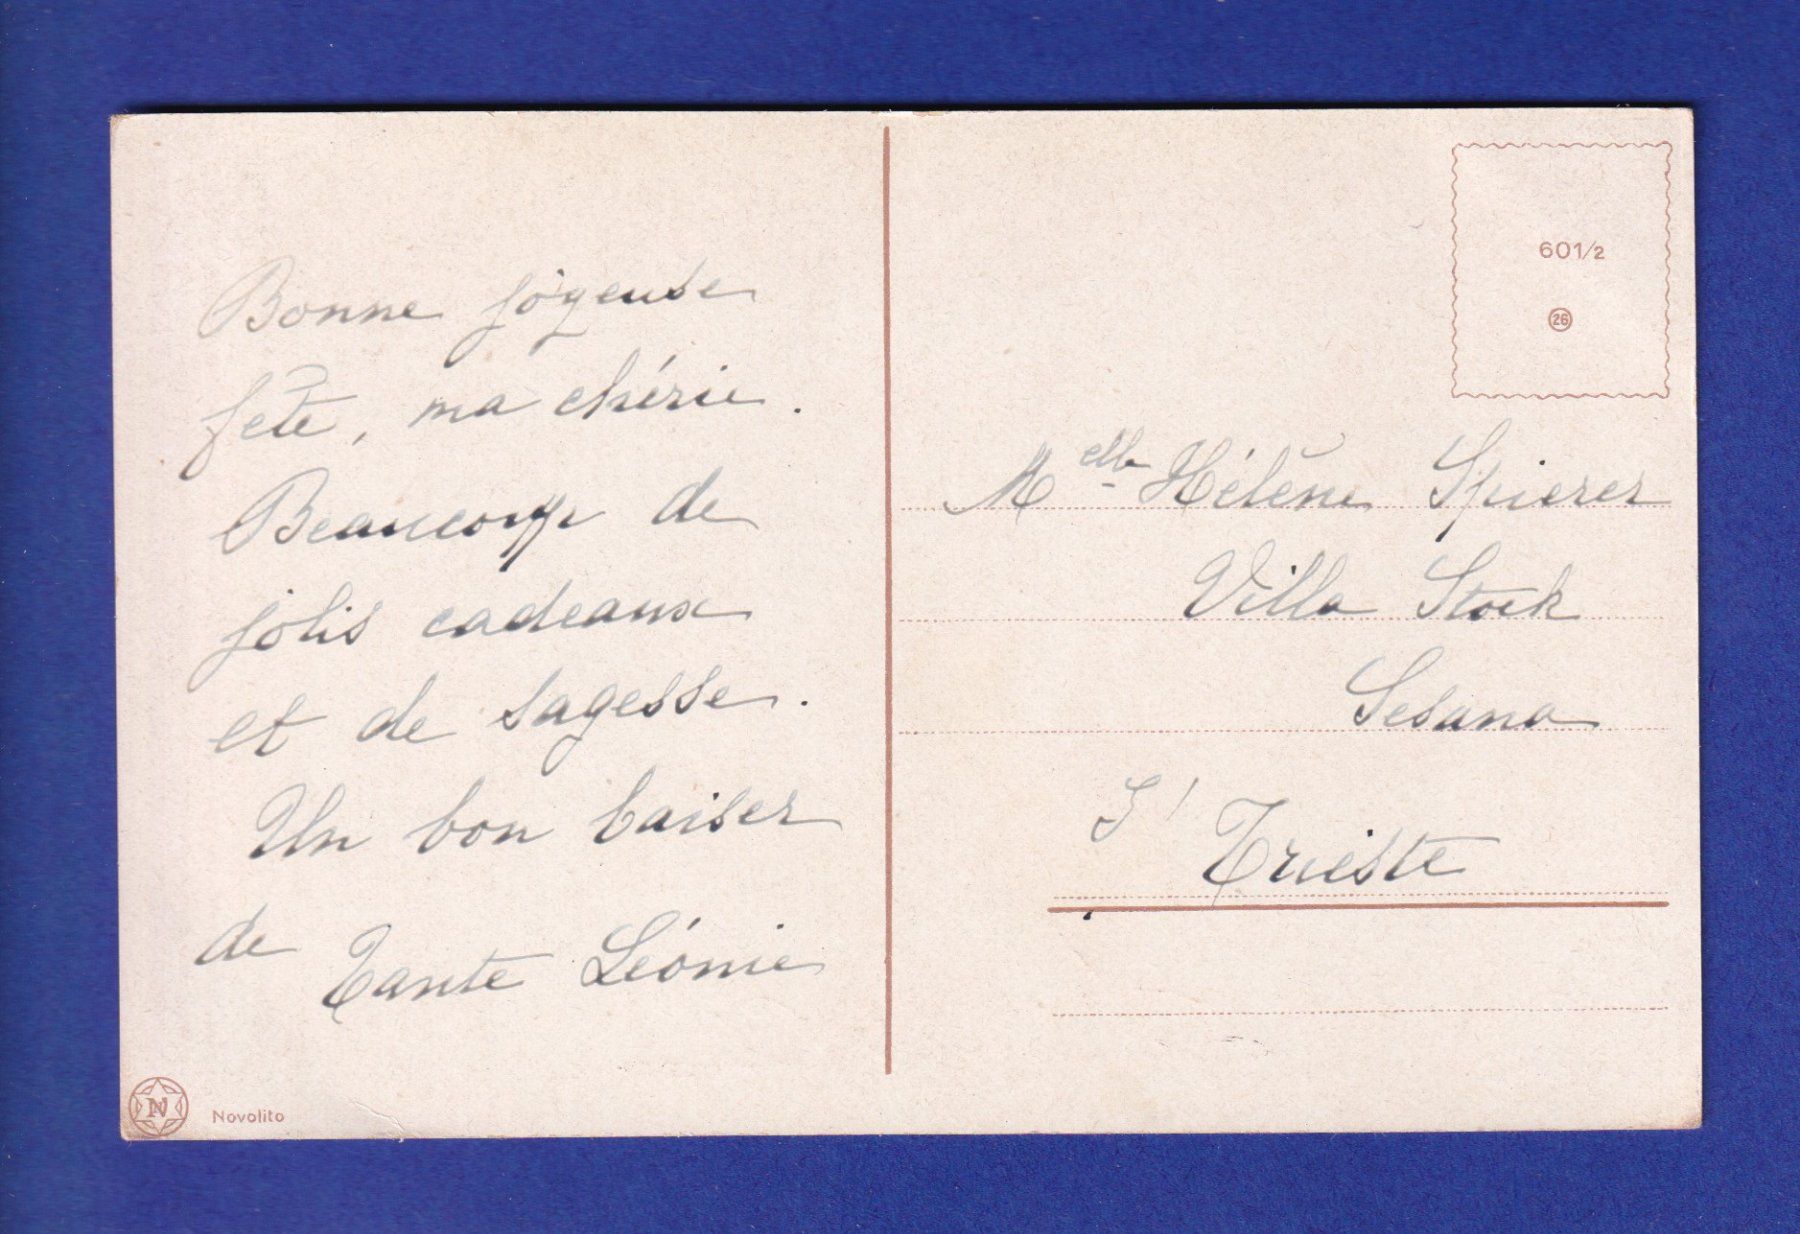 Bonne joyeuse
fête, ma chérie.
Beaucoup de
jolis cadeaux
et de sagesse.
Un bon baiser
de Tante Léonie
N
Novolito
601/2
26
Melle Hélène Spierer
Villa Stock
Sesana
S/ Trieste